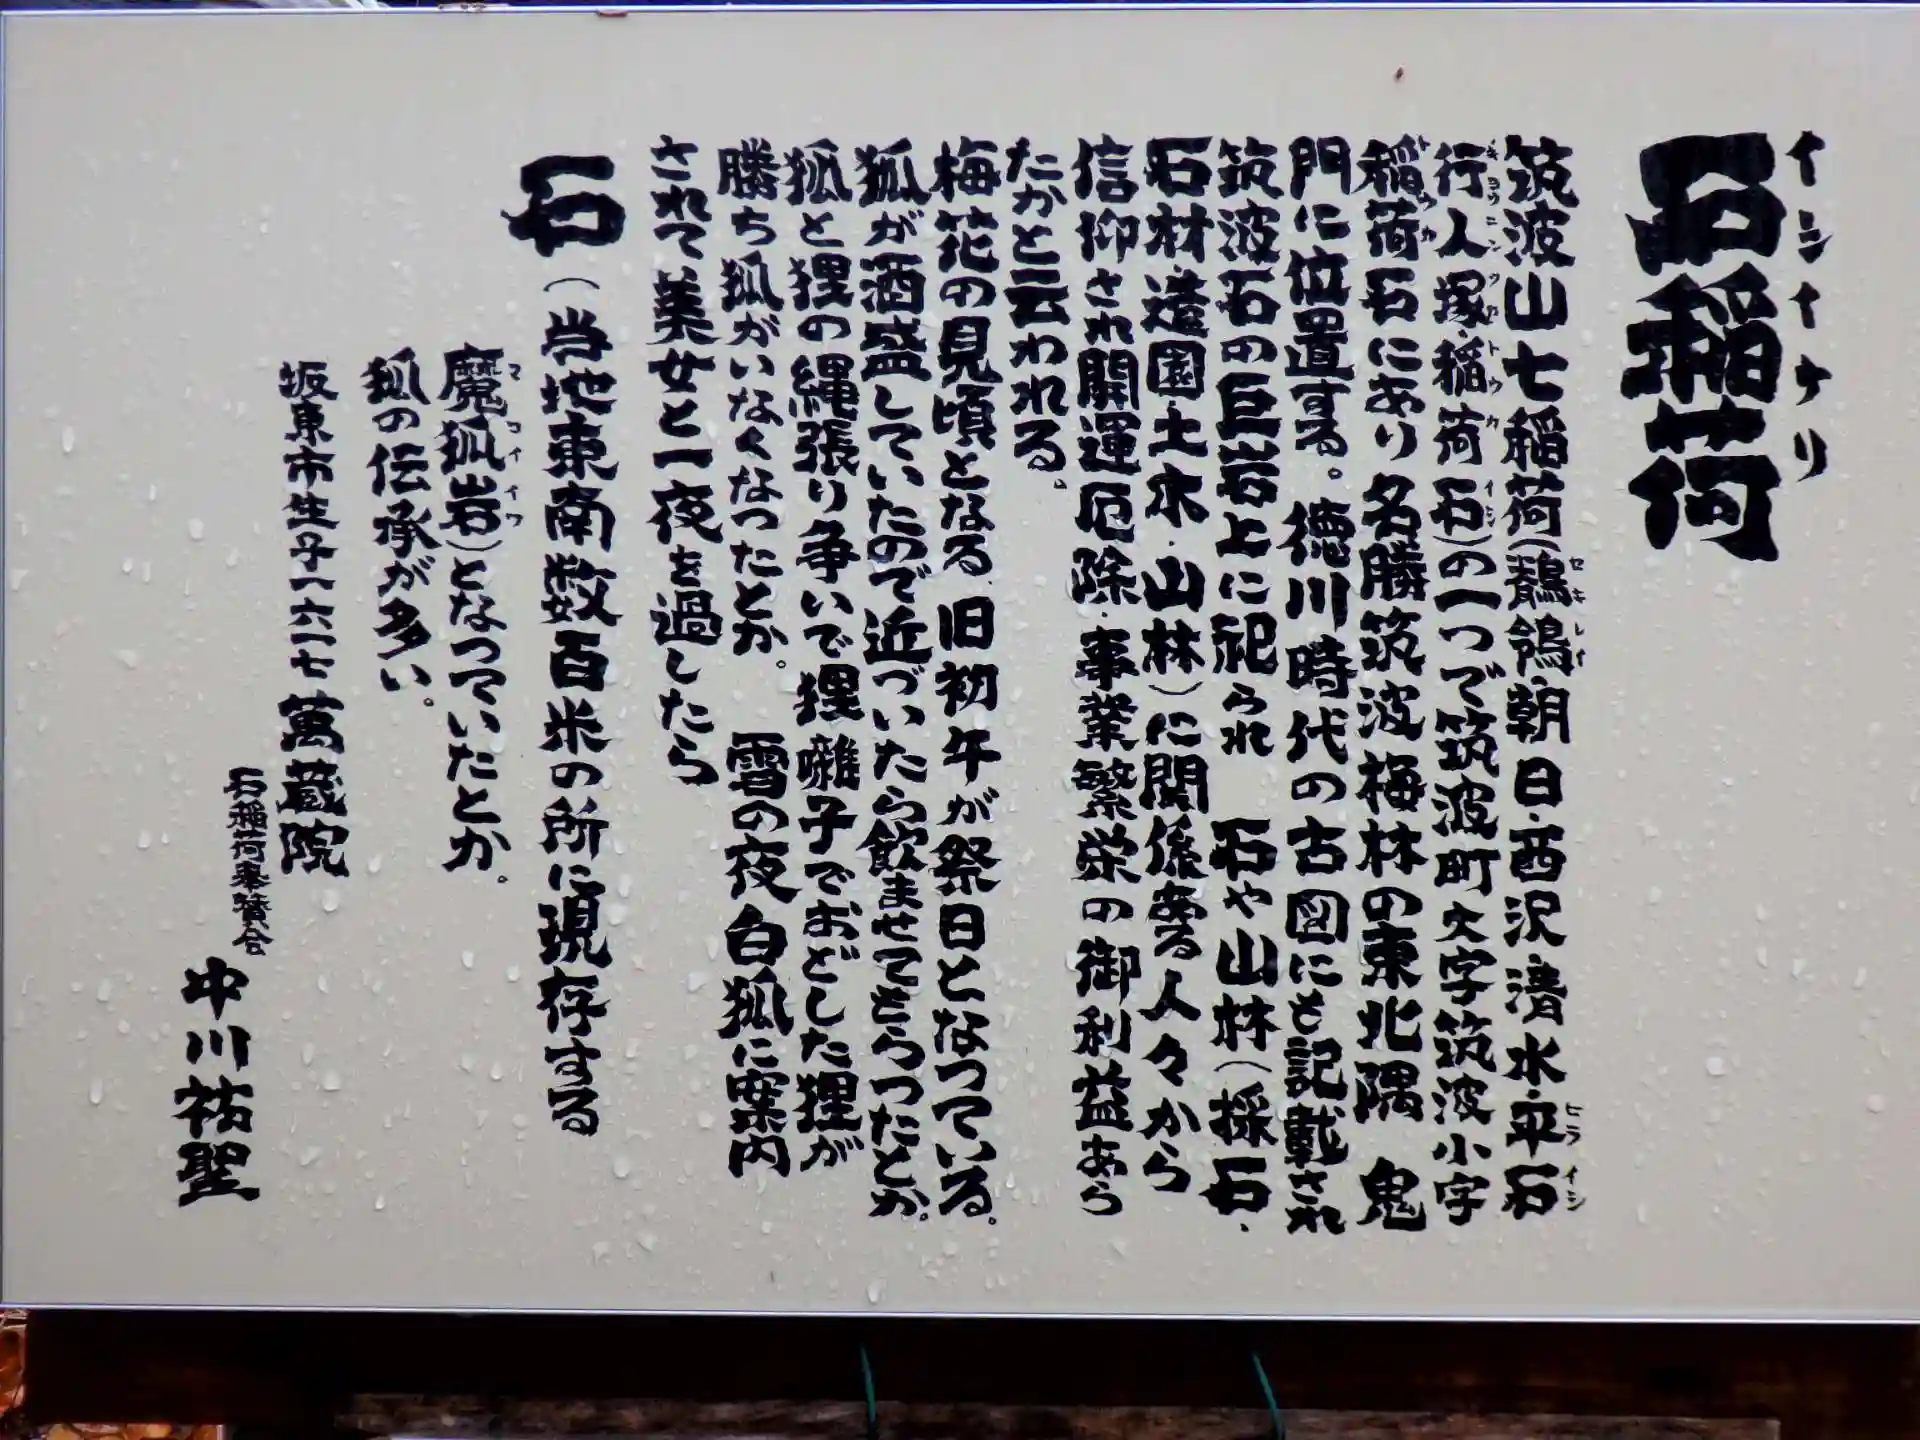 石稲荷
イシイナリ
筑波山七稲荷(鶺鴒・朝日・西沢・清水・平石
セキレイ
ヒライシ
行人塚・稲荷石)の一つで筑波町大字筑波小字
ギョウニンヅカ
トウカ
イシ
稲荷石にあり名勝筑波梅林の東北隅 鬼
トウカ
門に位置する。徳川時代の古図にも記載され
筑波石の巨岩上に祀られ 石や山林(採石・
石材・造園・土木・山林)に関係ある人々から
信仰され開運厄除・事業繁栄の御利益あら
たかと云われる。
梅花の見頃となる 旧初午が祭日となっている。
狐が酒盛していたので近づいたら飲ませてもらったとか。
狐と狸の縄張り争いで狸囃子でおどした狸が
勝ち狐がいなくなったとか。 雪の夜白狐に案内
されて美女と一夜を過したら
石(当地東南数百米の所に現存する
魔狐岩)となっていたとか。
マコイワ
狐の伝承が多い。
坂東市生子一六一七 萬蔵院
石稲荷奉賛会
中川祐聖